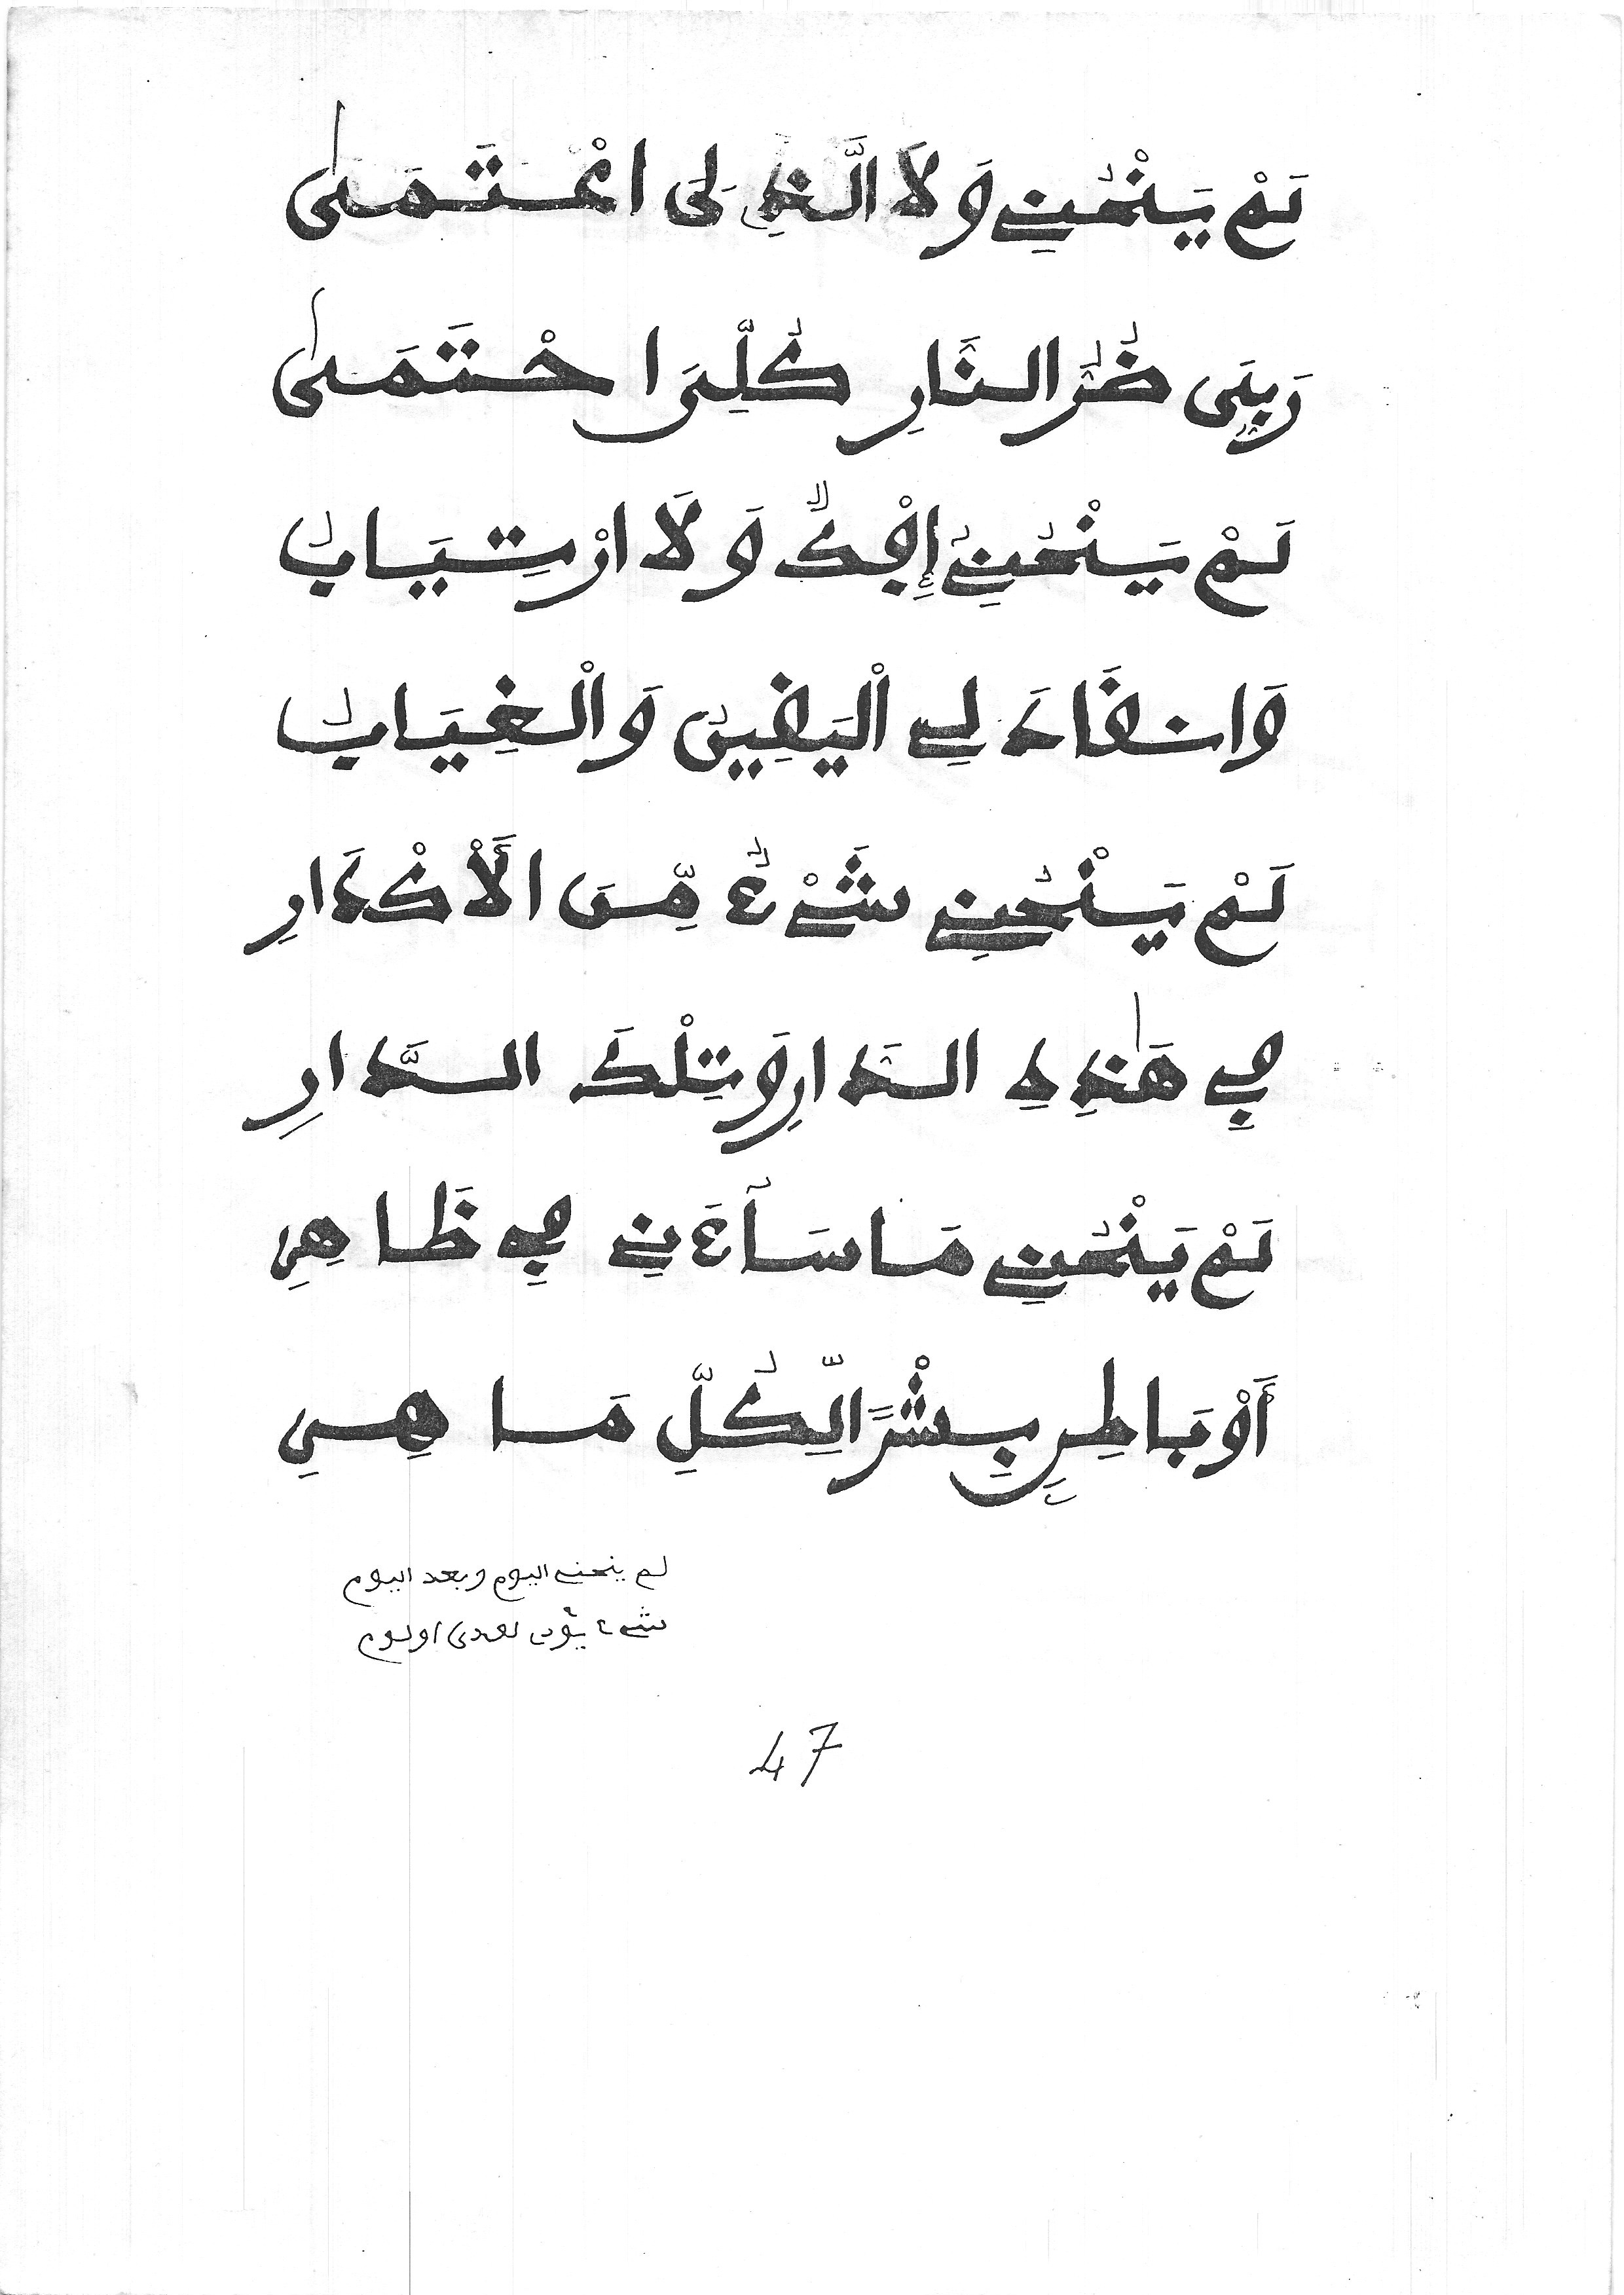 لَمْ يَنْحُنِي وَلَا الَّذِي لَى اعْتَمَى
ضُرُّ النَّارِ كُلِّيَ احْتَمَى
لَمْ يَنْحُنِي إِفْكٌ وَلَا ارْتِيَابُ
وَانقَادَ لِي الْيَقِينُ وَالْغِيَابُ
لَمْ يَنْحُنِي شَيْءٌ مِّنَ الْأَكْدَارِ
فِي هَٰذِهِ الدَّارِ وَتِلْكَ الدَّارِ
لَمْ يَنْحُنِي مَا سَآءَنِي فِي ظَاهِرِ
أَوْ بَاطِنٍ بِشْرًا لِّكُلِّ مَاهِرِ
لم ينحني اليوم وبعد اليوم
شيء او لوم
47